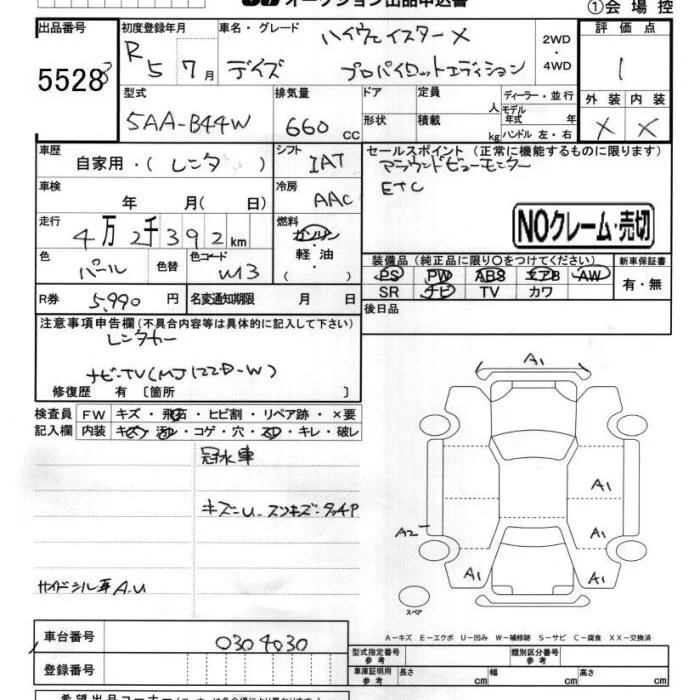 オークション出品申込書
①会場控
出品番号 初度登録年月 車名・グレード 評価点
55283 R5 7月 デイズ ハイウェイスターX プロパイロットエディション 2WD・4WD 1
型式 排気量 ドア 定員 人 ディーラー・並行 外装 内装
5AA-B44W 660 cc 形状 積載 kg モデル年式 年 ハンドル 左・右 × ×
車歴 シフト セールスポイント (正常に機能するものに限ります)
自家用・(レンタ) IAT アラウンドビューモニター
車検 冷房 ETC
年 月( 日) AAC
走行 燃料 NOクレーム・売切
4万2千392km ガソリン
色 色替 色コード 軽・油 装備品 (純正品に限り○をつけてください) 新車保証書
パール W13 ・( ) PS PW ABS エアB AW 有・無
R券 5,990円 名変通知期限 月 日 SR ナビ TV カワ
注意事項申告欄 (不具合内容等は具体的に記入して下さい) 後日品
レンタカー
ナビTV(MJ122D-W)
修復歴 有 〔箇所 〕
検査員 FW キズ・飛石・ヒビ割・リペア跡・×要
記入欄 内装 キズ・汚レ・コゲ・穴・スレ・キレ・破レ
冠水車
キズ-U スンキズ・タッチP
サイドシル下A.U
A1
A1
A1
A2
A1
A1
スペア
A-キズ E-エクボ U-凹み W-補修跡 S-サビ C-腐食 XX-交換済
車台番号 0304030 型式指定番号 参考 類別区分番号 参考
登録番号 車庫証明用 参考 長さ cm 幅 cm 高さ cm
希望出品コーナー